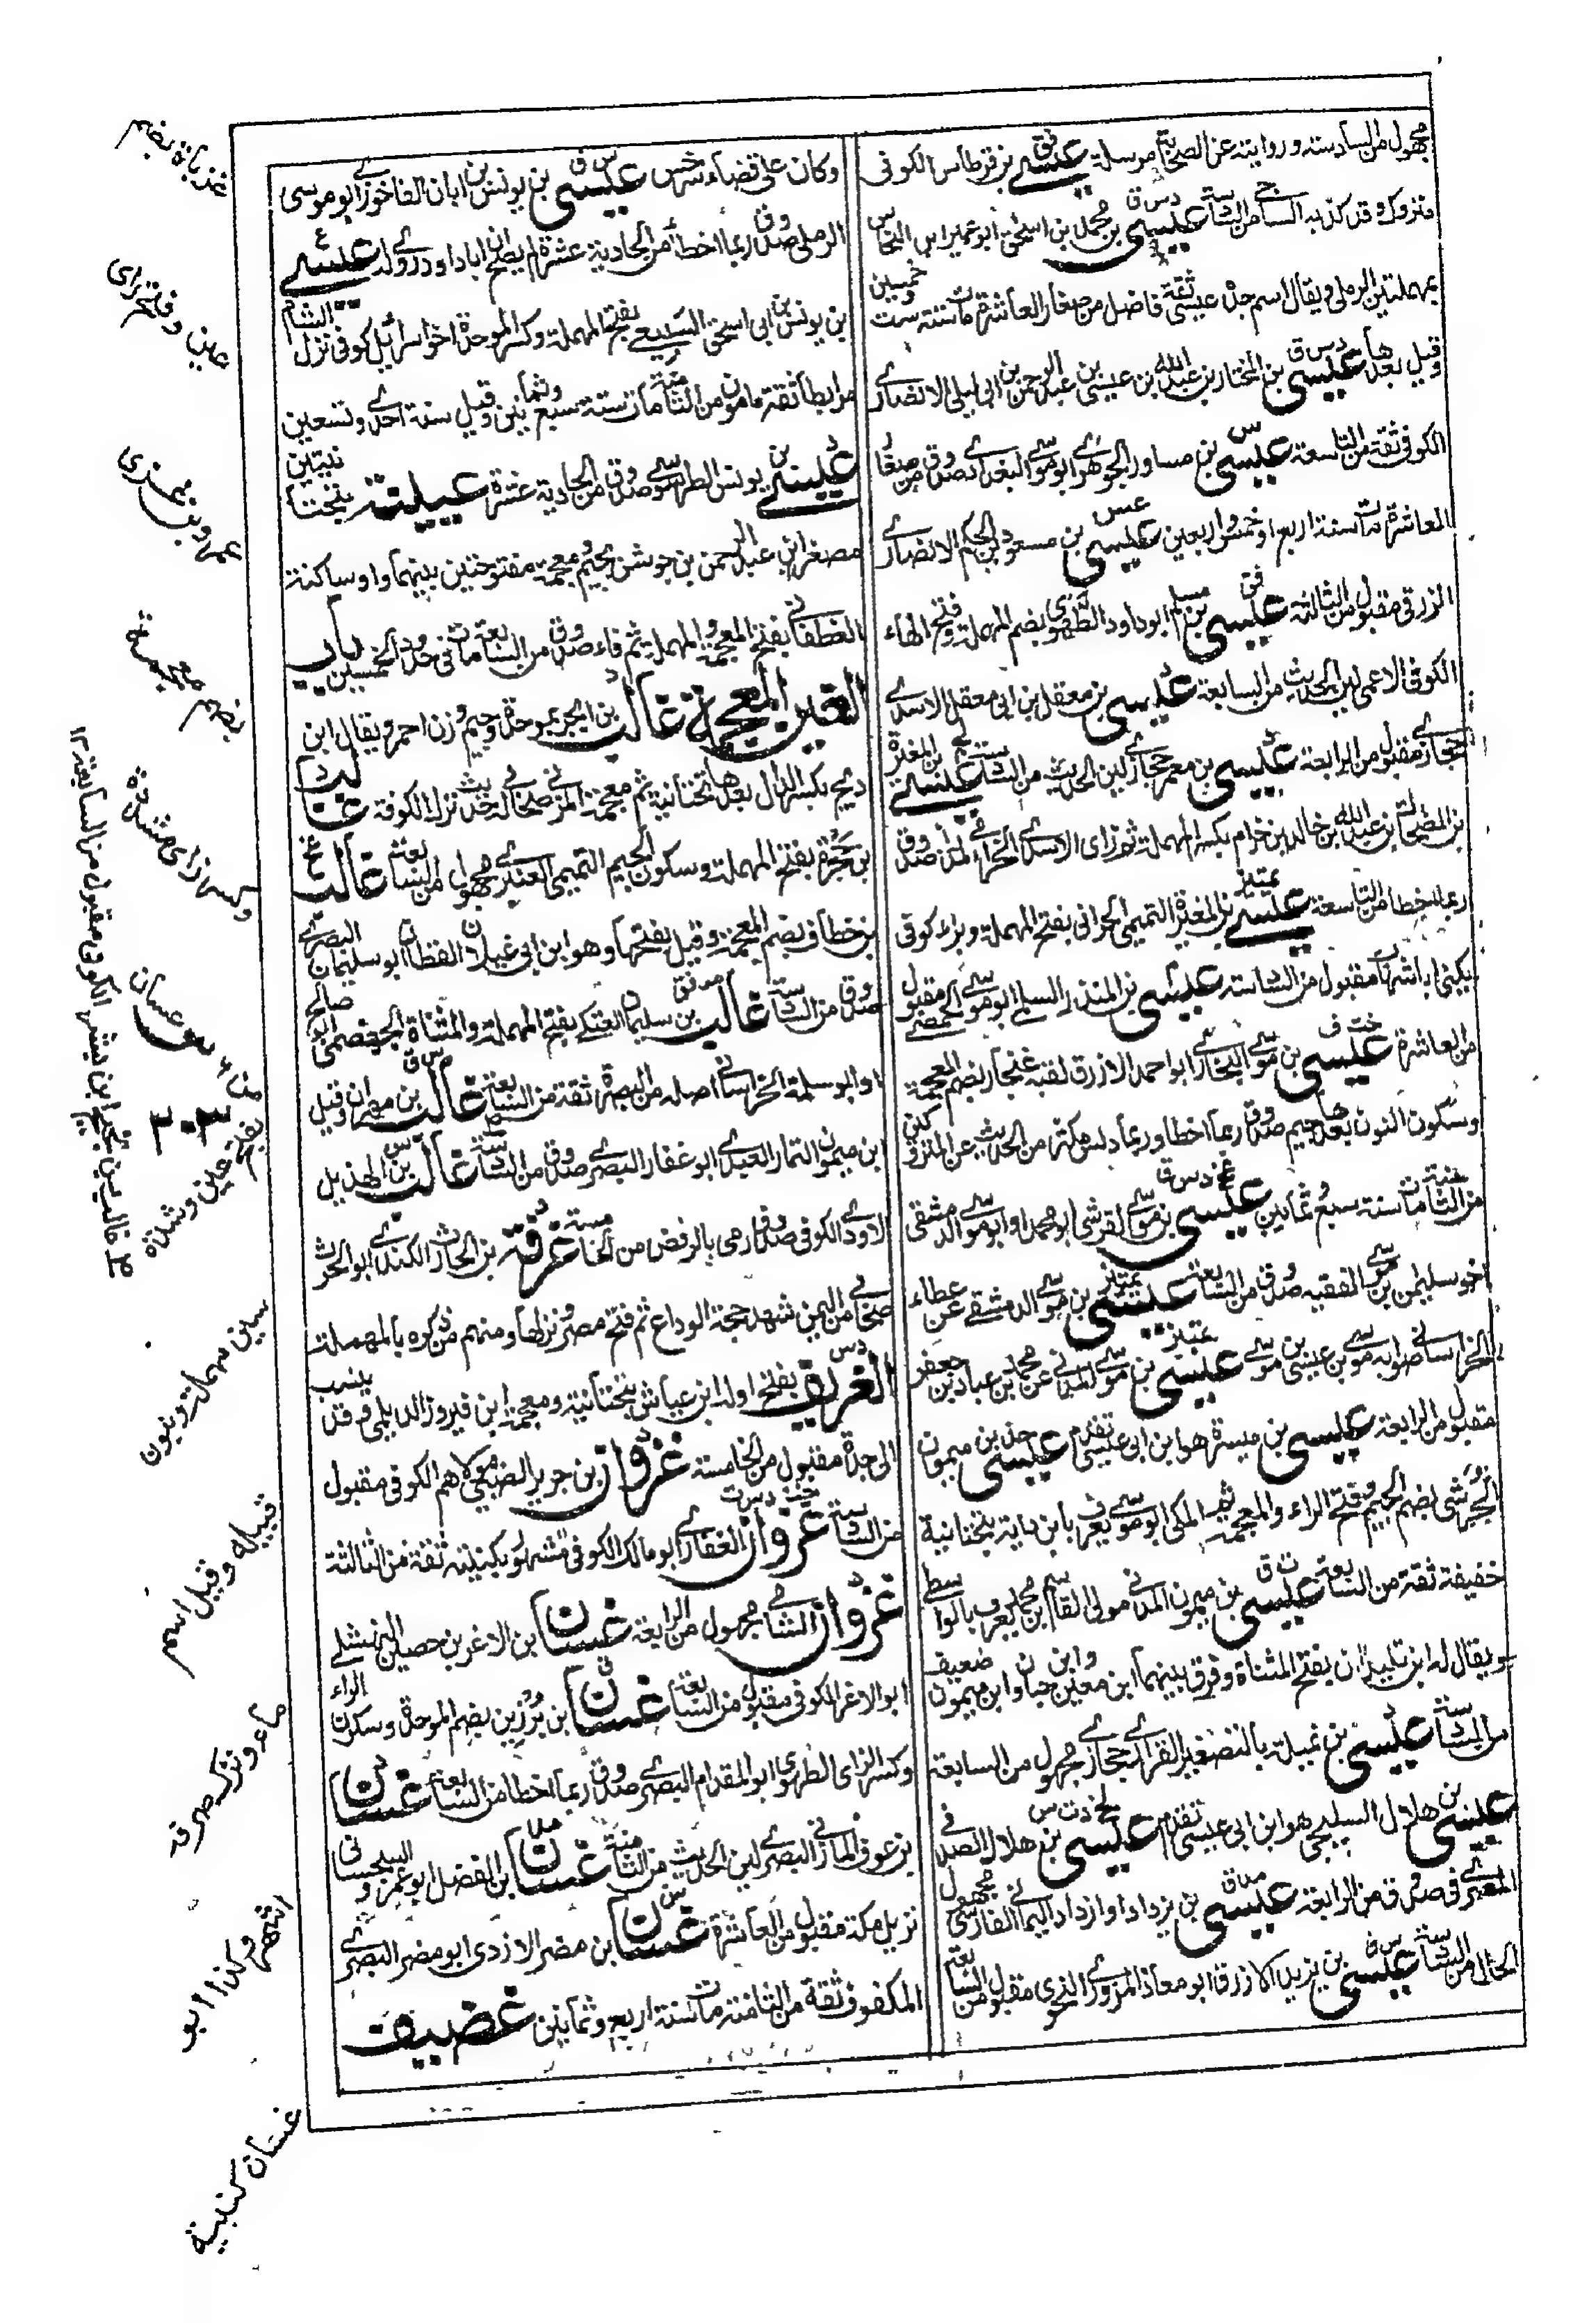 مجهول من السادسة وروايته عن الصحابة مرسلة عيسى بن قرطاس الكوفى
متروك وقد كذبه الساجى من السادسة عيسى بن محمد بن اسحق ابو عمير ابن النحاس
بمهملتين الرملى ويقال اسم جده عيسى ثقة فاضل من صغار العاشرة مات سنة ست وخمسين
وقيل بعدها عيسى بن المختار بن عبد الله بن عيسى بن عبد الرحمن بن ابى ليلى الانصارى
الكوفى ثقة من التاسعة عيسى بن مساور الجوهرى ابو موسى البغدادى صدوق من صغار
العاشرة مات سنة اربع او خمس واربعين عيسى بن مسعود بن الحكم الانصارى
الزرقى مقبول من الثالثة عيسى بن مسلم ابو داود الطهوى بضم المهملة وفتح الهاء
الكوفى الاعمى لين الحديث من السابعة عيسى بن معقل بن ابى معقل الاسدى
حجازى مقبول من الرابعة عيسى بن معمر حجازى لين الحديث من السادسة عيسى بن المغيرة
بن الضحاك بن عبد الله بن خالد بن حزام بكسر المهملة ثم زاى الاسدى الحزامى المدنى صدوق
ربما اخطا من التاسعة عيسى بن المغيرة التميمى الحرامى بفتح المهملة وبراء كوفى
يكنى ابا شهاب مقبول من السادسة عيسى بن المنذر السلمى ابو موسى الحمصى مقبول
من العاشرة عيسى بن موسى البخارى ابو احمد الازرق لقبه غنجار بضم المعجمة
وسكون النون بعدها جيم صدوق ربما اخطا وربما دلس مكثر من الحديث عن المتروكين
من الثامنة مات سنة سبع وثمانين عيسى بن موسى القرشى ابو محمد او ابو موسى الدمشقى
اخو سليمن بن موسى الفقيه صدوق من السابعة عيسى بن موسى الدمشقى عن عطاء
الخراسانى صوابه موسى بن عيسى بن موسى عيسى بن موسى المدنى عن محمد بن عباد بن جعفر
مقبول من الرابعة عيسى بن ميسرة هو ابن ابى عيسى تقدم عيسى بن ميمون
الجرشى بضم الجيم وفتح الراء والمعجمة ثم المكى ابو موسى يعرف بابن داية بتحتانية
خفيفة ثقة من السابعة عيسى بن ميمون المدنى مولى القاسم بن محمد يعرف بالواسطى
ويقال له ابن تليدان بفتح المثناة وفرق بينهما ابن معين وابن حبان وابن ميمون ضعيف
من السادسة عيسى بن نميلة بالتصغير الفزارى حجازى مجهول من السابعة
عيسى بن هلال السليحى هو ابن ابى عيسى تقدم عيسى بن هلال الصدفى
المصرى صدوق من الرابعة عيسى بن يزداد او ازداد اليمانى الفارسى مجهول
الحال من السادسة عيسى بن يزيد الازرق ابو معاذ المروزى النحوى مقبول من السابعة
وكان على قضاء سرخس عيسى بن يونس بن ابان الفاخورى ابو موسى
الرملى صدوق ربما اخطأ من الحادية عشرة لم يصح ان ابا داود روى له عيسى
بن يونس بن ابى اسحق السبيعى بفتح المهملة وكسر الموحدة اخو اسرائيل كوفى نزل الشام
مرابطا ثقة مامون من الثامنة مات سنة سبع وثمانين وقيل سنة احدى وتسعين
عيسى بن يونس الطرسوسى صدوق من الحادية عشرة عيينة بتحتانيتين
مصغر ابن عبد الرحمن بن جوشن بجيم ومعجمة مفتوحتين بينهما واو ساكنة
الغطفانى بفتح المعجمة والمهملة ثم فاء صدوق من السابعة مات فى حدود الخمسين باب
الغين المعجمة غالب بن ابجر بموحدة وجيم وزن احمر ويقال ابن
ديخ بكسر الدال بعدها تحتانية ثم معجمة المزنى صحابى له حديث نزل الكوفة غالب
بن حجرة بفتح المهملة وسكون الجيم التميمى العنبرى مجهول من السابعة غالب
بن خطاف بضم المعجمة وقيل بفتحها وهو ابن ابى غيلان القطان ابو سليمان البصرى
صدوق من السادسة غالب بن سليمان العتكى بفتح المهملة والمثناة الجهضمى ابو صالح
او ابو سلمة الخراسانى اصله من البصرة ثقة من السابعة غالب بن مهران وقيل
ابن ميمون التمار العبدى ابو غفار البصرى صدوق من السادسة غالب بن الهذيل
الاودى الكوفى صدوق رمى بالرفض من الخامسة غرفة بن الحارث الكندى ابو الحرث
صحابى من اليمن شهد حجة الوداع ثم فتح مصر ونزلها ومنهم من ذكره بالمهملة
الغريف بفتح اوله ابن عياش بتحتانية ومعجمة ابن فيروز الديلمى وقد ينسب
الى جده مقبول من الخامسة غزوان بن جرير الضبى مولاهم الكوفى مقبول
من السادسة غزوان الغفارى ابو مالك الكوفى مشهور بكنيته ثقة من الثالثة
غزوان الشامى مجهول من الرابعة غسان بن الاغر بن حصين النهشلى
ابو الاغر الكوفى مقبول من السابعة غسان بن برزين بضم الموحدة وسكون الراء
وكسر الزاى الطهوى ابو المقدام البصرى صدوق ربما اخطا من السابعة غسان
بن عوف المازنى البصرى لين الحديث من الثامنة غسان بن الفضل ابو عمرو السجستانى
نزيل مكة مقبول من العاشرة غسان بن مضر الازدى ابو مضر البصرى
المكفوف ثقة من الثامنة مات سنة اربع وثمانين غضيف
عين وفتح راى
بضم معجمة
وكسر زاى مشددة
٣٠٣
بفتح عين وشدة
سين مهملة وبنون
قبيلة وقيل اسم
ماء ونترك صرفه
اشهر وكذا ابو
غسان كنيته
غالب بن نجيح ابن بشر الكوفى مقبول من السابعة ١٢